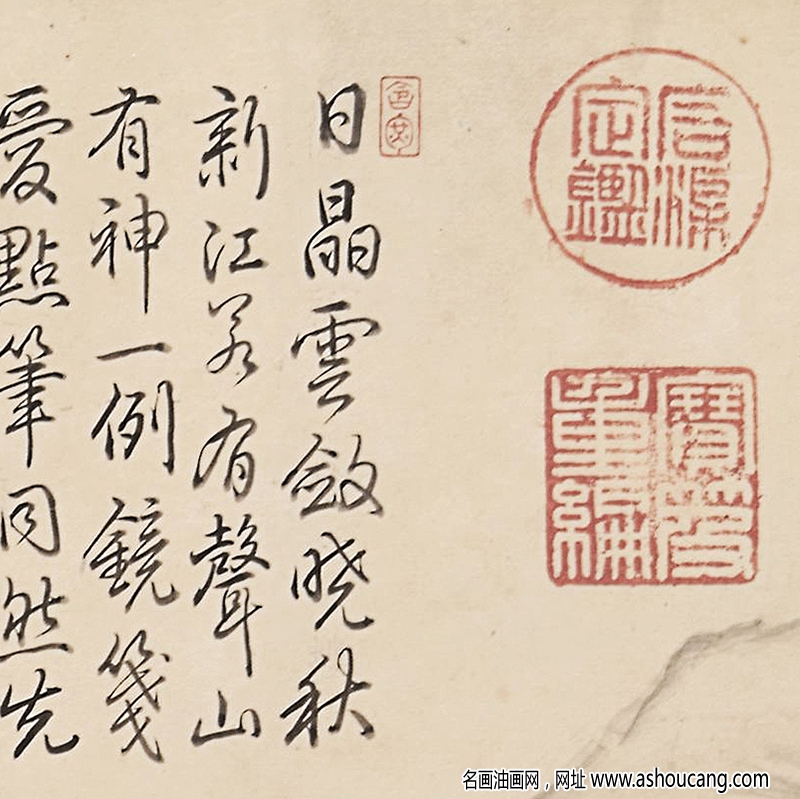 石渠
定鑑
寶笈
重編
日晶雲斂曉秋
新江若有聲山
有神一例鏡箋
愛點筆同然先
名画油画网，网址 www.ashoucang.com